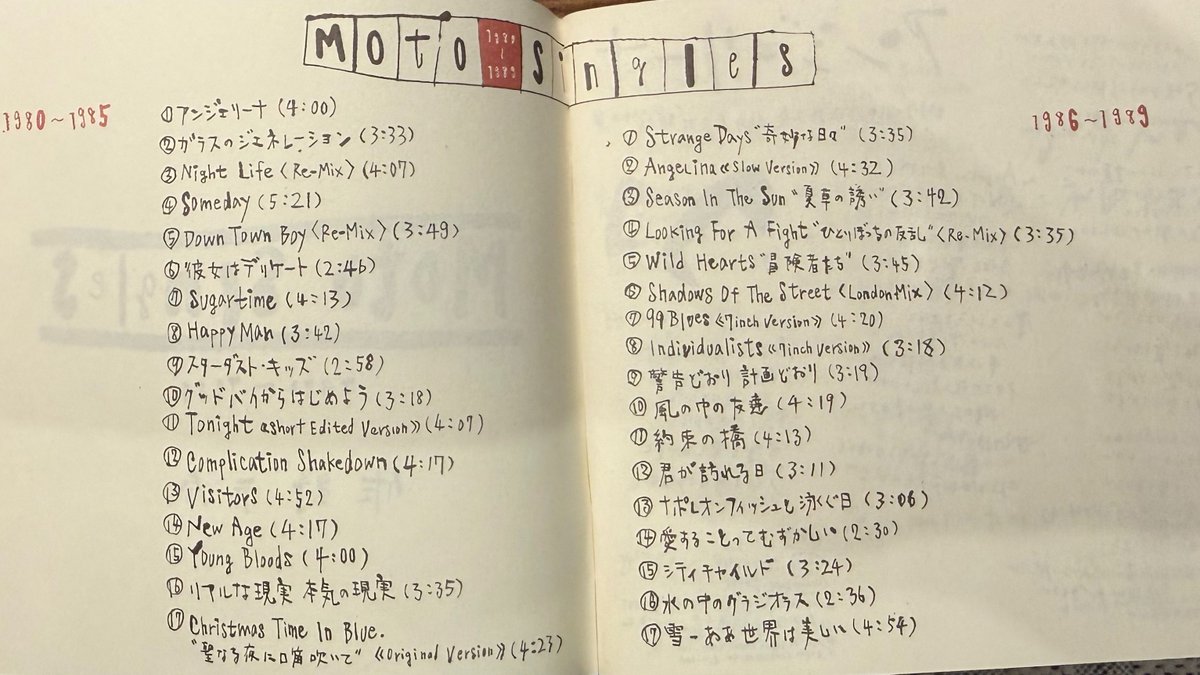 Moto 1980~1989 Singles
1980~1985
①アンジェリーナ (4:00)
②ガラスのジェネレーション (3:33)
③Night Life〈Re-Mix〉(4:07)
④Someday (5:21)
⑤Down Town Boy〈Re-Mix〉(3:49)
⑥彼女はデリケート (2:46)
⑦Sugartime (4:13)
⑧Happy Man (3:42)
⑨スターダスト・キッズ (2:58)
⑩グッドバイからはじめよう (3:18)
⑪Tonight《Short Edited Version》(4:07)
⑫Complication Shakedown (4:17)
⑬Visitors (4:52)
⑭New Age (4:17)
⑮Young Bloods (4:00)
⑯リアルな現実 本気の現実 (3:35)
⑰Christmas Time In Blue.
"聖なる夜に口笛吹いて"《Original Version》(4:23)
1986~1989
①Strange Days"奇妙な日々" (3:35)
②Angelina《Slow Version》(4:32)
③Season In The Sun "夏草の誘い" (3:42)
④Looking For A Fight"ひとりぼっちの反乱"〈Re-Mix〉(3:35)
⑤Wild Hearts"冒険者たち" (3:45)
⑥Shadows Of The Street〈London Mix〉(4:12)
⑦99 Blues《7inch Version》(4:20)
⑧Individualists《7inch Version》(3:18)
⑨警告どおり 計画どおり (3:19)
⑩風の中の友達 (4:19)
⑪約束の橋 (4:13)
⑫君が訪れる日 (3:11)
⑬ナポレオンフィッシュと泳ぐ日 (3:06)
⑭愛することってむずかしい (2:30)
⑮シティチャイルド (3:24)
⑯水の中のグラジオラス (2:36)
⑰雪ーああ世界は美しい (4:54)